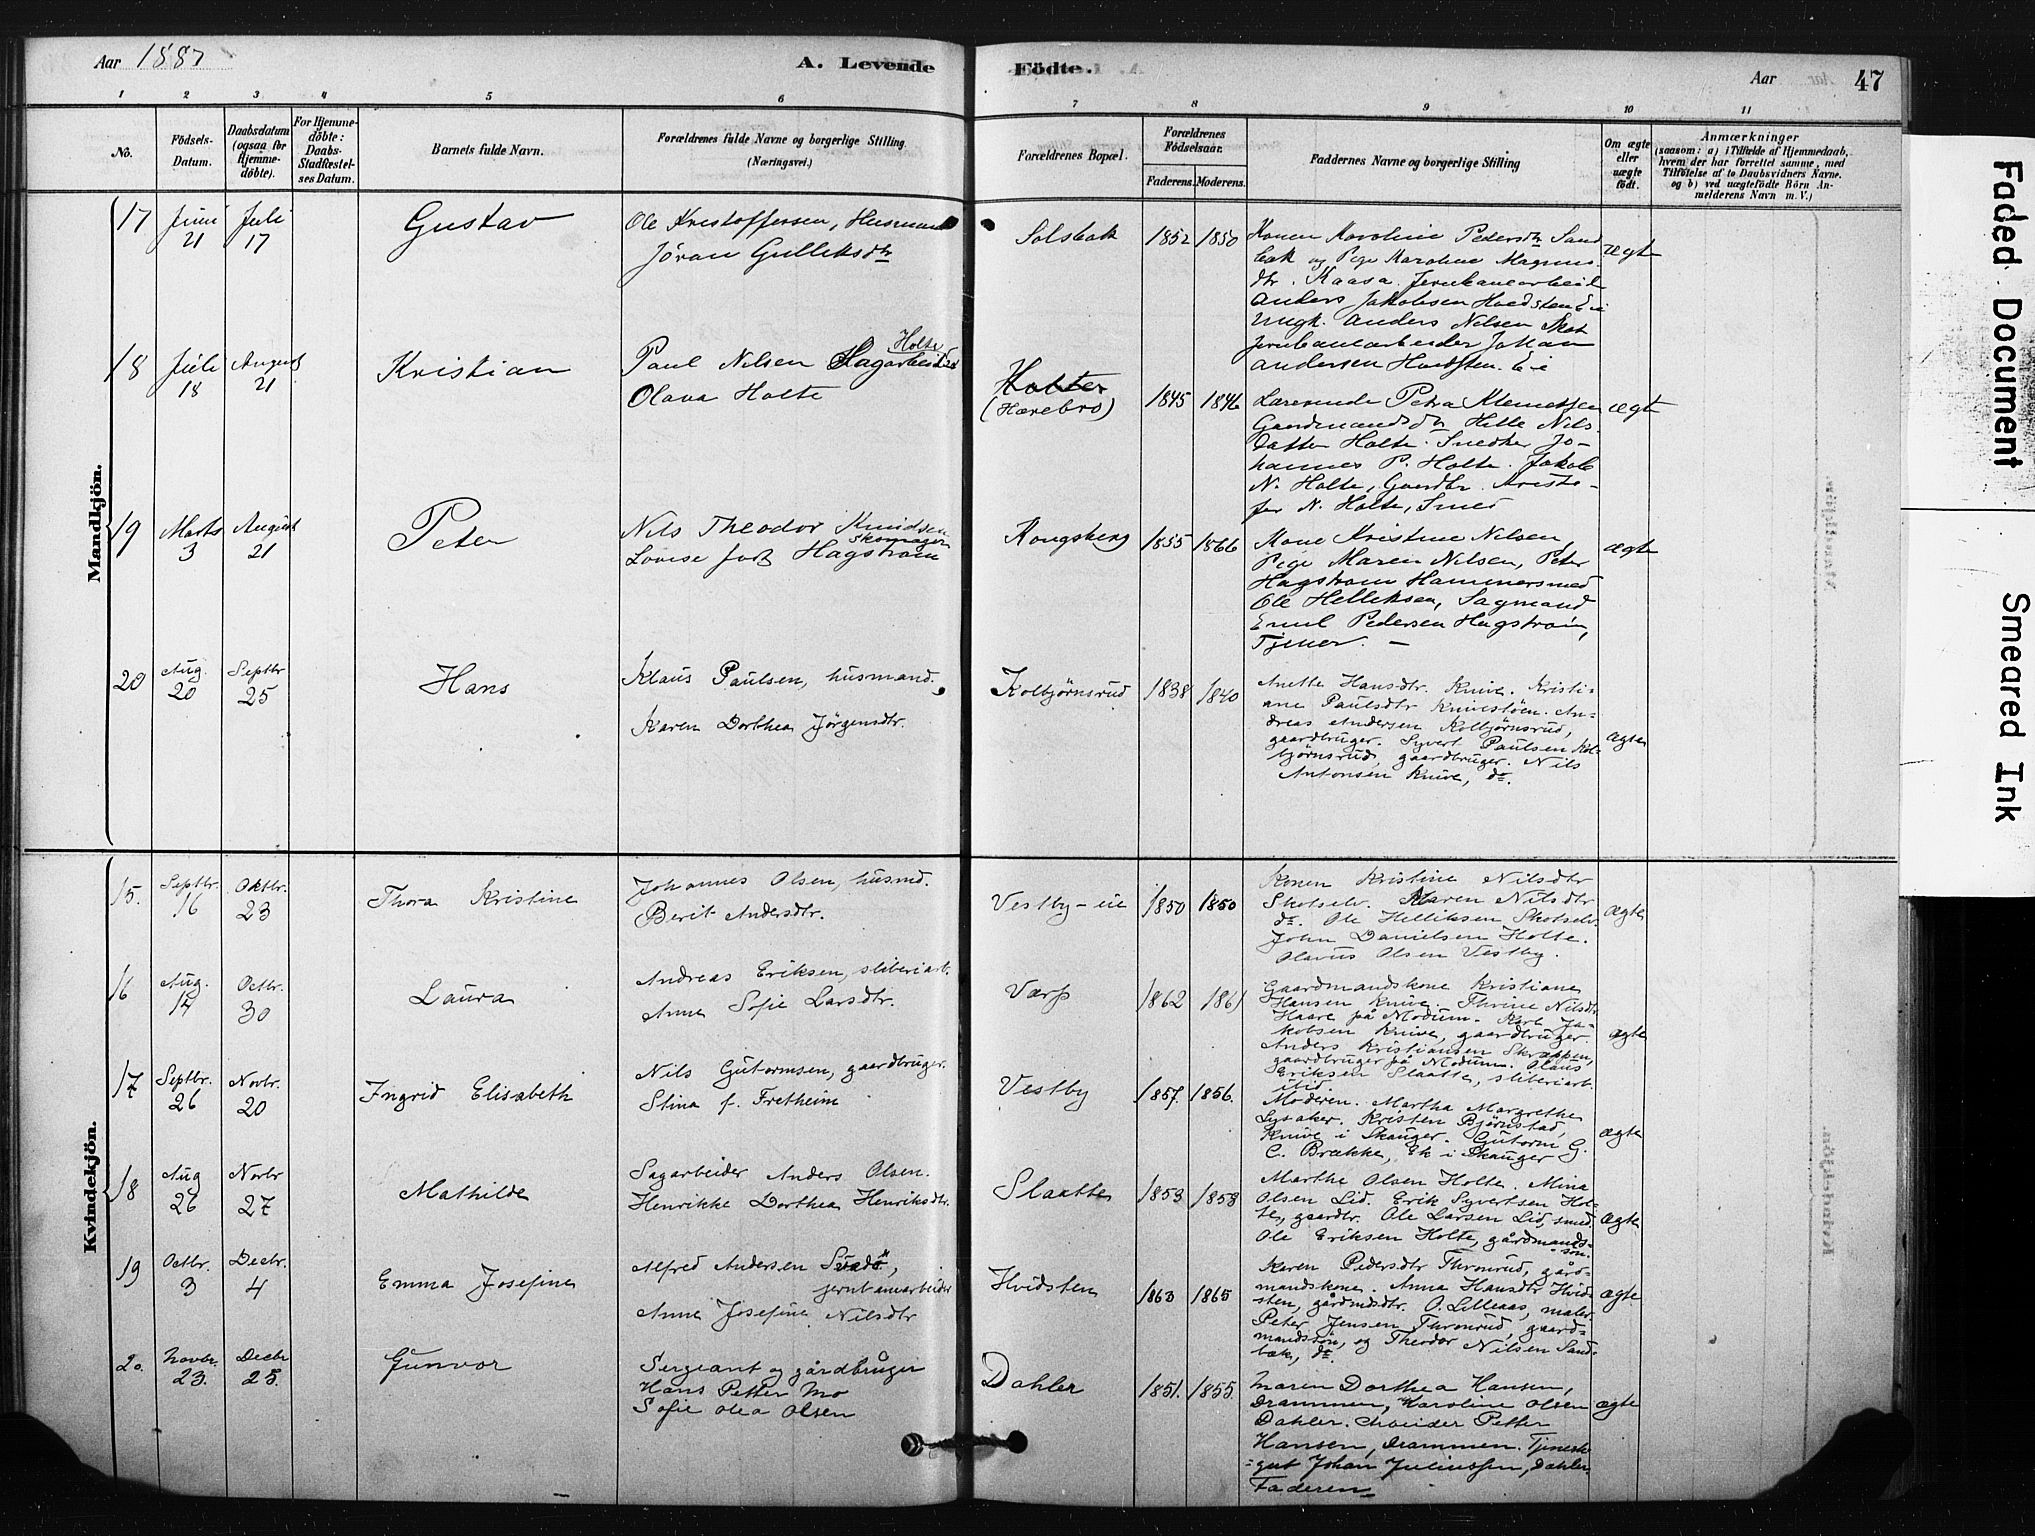 Aar 1887
A. Levende
Födte.
Aar
47
1 2 3 4 5 6 7 8 9 10 11
No.
Födsels-Datum.
Daabsdatum (ogsaa for Hjemme-döbte).
For Hjemme-döbte: Daabs-Stadfæstel-ses Datum.
Barnets fulde Navn.
Forældrenes fulde Navne og borgerlige Stilling. (Næringsvei.)
Forældrenes Bopæl.
Forældrenes Födselsaar.
Faderens. Moderens.
Faddernes Navne og borgerlige Stilling
Om ægte eller uægte födt.
Anmærkninger
(saasom: a) i Tilfælde af Hjemmedaab,
hvem der har forrettet samme, med
Tilföielse af to Daabsvidners Navne.
og b) ved uægtefödte Börn An-
melderens Navn m. V.)
Mandkjön.
17 Juni 21 Juli 17 Gustav
Ole Kristoffersen, Husmand
Jöran Gulliksdtr
Solsbak 1852 1850
Konen Karoline Pedersdtr Sand
bak og Pige Karoline Magnus
dtr. Kaasa. Jernbanearbeid
Anders Jakobsen Hvidsten Eie
Ungk. Anders Nilsen
Jernbanearbeider Johan
Andersen Hvidsten. Eie
ægt
18 Juli 18 August 21 Kristian
Paul Nilsen Holte Sagarbeider
Olava Holte
Holter
(Harebro) 1845 1846
Lærerinde Petra Klemetsen
Gaardmandsdtr Helle Nils
datter Holte. Snedker Jo-
hannes P. Holte. Jakob
N. Holte, Gaardbr. Kristo-
fer N. Holte, Smed
ægt
19 Marts 3 August 21 Peter
Nils Theodor Knudsen
Skomager
Lovise född Hagstrøm
Kongsberg 1855 1866
Kone Kristine Nilsen
Pige Maren Nilsen, Peter
Hagstrøm Hammersmed
Ole Helliksen, Sagmand
Emil Pedersen Hagstrøm,
Tjener. —
ægte
20 Aug. 20 Septbr 25 Hans
Klaus Paulsen, husmand.
Karen Dorthea Jørgensdtr.
Kolbjørnsrud 1838 1840
Anette Hansdtr. Knive. Kristi-
ane Paulsdtr Knivestøen. An-
dreas Andersen Kolbjørnsrud,
gaardbruger. Syvert Paulsen Kol-
bjørnsrud, gaardbruger. Nils
Antonsen Knive, do.
ægte
Kvindekjön.
15. Septbr. 16 Oktbr. 23 Thora Kristine
Johannes Olsen, husmd.
Berit Andersdtr.
Vestby-eie 1850 1850
Konen Kristine Nilsdtr
Skotselv. Maren Nilsdtr
do. Ole Helliksen Skotselv.
John Danielsen Holte.
Olavus Olsen Vestby.
ægte
16 Aug. 14 Octbr. 30 Laura
Andreas Eriksen, sliberiarb.
Anne Sofie Larsdtr.
Varp 1862 1861
Gaardmandskone Kristiane
Hansen Knive. Thrine Nilsdtr
Haare på Modum. Karl Ja-
kobsen Knive, gaardbruger.
Anders Kristiansen Skrappen,
gaardbruger på Modum. Claus
Eriksen Slaatte, sliberiarb.
ægte
17 Septbr. 26 Novbr. 20 Ingrid Elisabeth
Nils Gutormsen, gaardbruger.
Stina f. Fretheim
Vestby 1857. 1856.
Moderen. Martha Margrethe
Lysaker. Kristen Bjørnstad,
Knive i Skauger. Gutorm G.
C. Brække, Ek i Skauger
ægte
18 Aug 26 Novbr 27 Mathilde
Sagarbeider Anders Olsen.
Henrikke Dorthea Henriksdtr.
Slaatte 1853 1853
Marthe Olsen Holte. Mina
Olsen Lid. Erik Syvertsen Hol-
te, gaardbr. Ole Larsen Lid, smed.
Ole Eriksen Holte, gårdmands-
søn.
ægte
19 Octbr. 3 Decbr. 4 Emma Josefine
Alfred Andersen
jernbanearbeider
Anne Josefine Nilsdtr
Hvidsten 1863 1865
Karen Pedersdtr Thronrud, gård-
mandskone. Anna Hansdtr Hvid-
sten, gårdmdsdtr. O. Lilleaas, maler.
Peter Jensen Thronrud, gaard-
mandssøn, og Theodor Nilsen Sand-
bæk, do.
ægte
20. Novbr. 23. Decbr 25. Gunvor
Sergeant og gårdbruger
Hans Petter Mo
Sofie Olea Olsen
Dahler 1851. 1855.
Maren Dorthea Hansen,
Drammen, Karoline Olsen
Dahler. Arbeider Petter
Hansen, Drammen. Tjeneste-
gut Johan Juliussen, Dahler.
Faderen
ægte
Faded Document
Smeared Ink